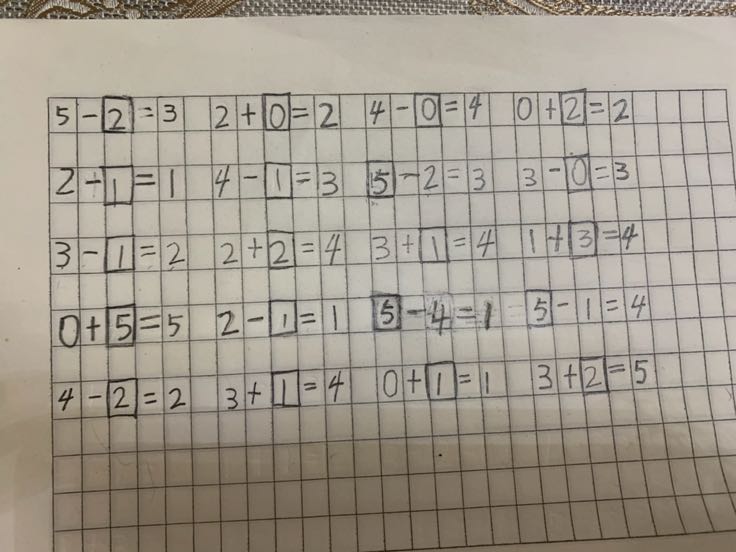 5 - 2 = 3 2 + 0 = 2 4 - 0 = 4 0 + 2 = 2
2 - 1 = 1 4 - 1 = 3 5 - 2 = 3 3 - 0 = 3
3 - 1 = 2 2 + 2 = 4 3 + 1 = 4 1 + 3 = 4
0 + 5 = 5 2 - 1 = 1 5 - 4 = 1 5 - 1 = 4
4 - 2 = 2 3 + 1 = 4 0 + 1 = 1 3 + 2 = 5